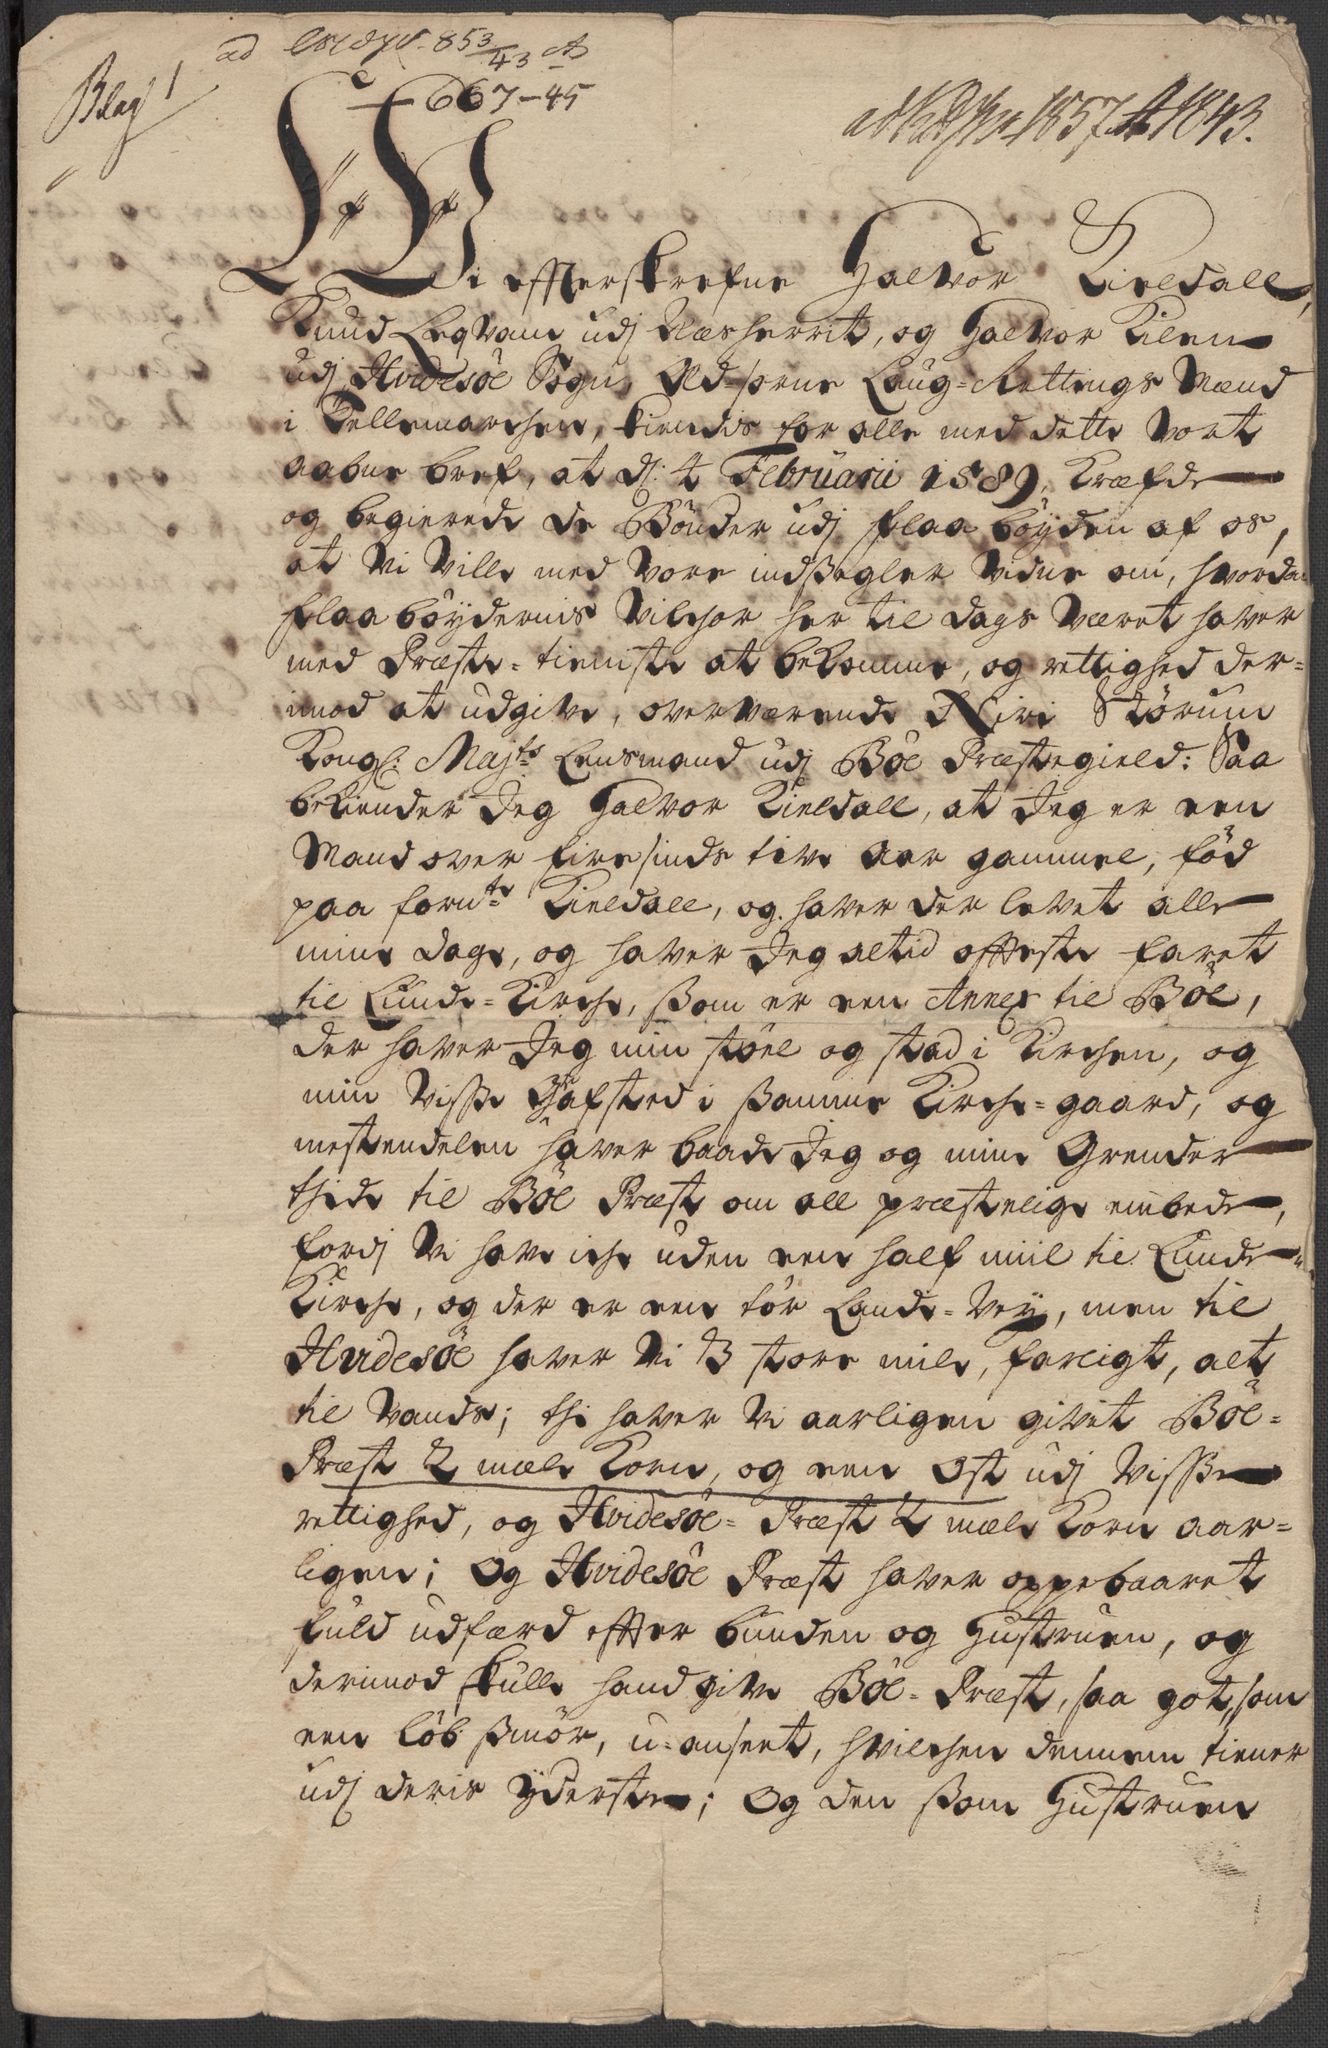 Blag 1
ad 853/43 A
667-45
1857 A 1843.
Wi effterskrefne Halvor Kieldall,
Knud Leqvam udj Næsherrit, og Halvor Kilen
udj Hvidesöe Sogn, Æd-sorne Laug-Rettings Mænd
i Tellemarchen, kiendis for alle med dette vort
aabne bref, at d: 4 Februarii 1589, Kræfde
og begierede de Bönder udj Flaa böyden af os,
at vi ville med vore indsegler vidne om, hvordan
Flaa böydernis vilchor her til dags været haver
med Præste-tieniste at bekomme, og rettighed der-
imod at udgive, overværende Niri Störum
Kongl: Majts Lensmand udj Böe Præstegield: Saa
bekiender Jeg Halvor Kieldall, at Jeg er een
Mand over firesinds tive Aar gammel, föd
paa fornte Kieldall, og haver der levet alle
mine dage, og haver Jeg altid offteste faret
til Lunde-Kirche, som er een Annex til Böe,
der haver Jeg min stöel og stad i Kirchen, og
min visse Grafsted i samme Kirche-gaard, og
mestendelen haver baade Jeg og mine Grender
thide til Böe Præst om all præstelige embede,
fordj vi have iche uden een half miil til Lunde-
Kirche, og der er een tör Lande-vey, men til
Hvidesöe haver vi 3 store mile, farligt, alt
til vands; thi haver vi aarligen givet Böe-
Præst 2 mæle Korn, og een Ost udj visse
rettighed, og Hvidesöe-Præst 2 mæle Korn aar-
ligen; Og Hvidesöe Præst haver oppebaaret
fuld udfærd effter bunden og Hustruen, og
derimod skulle hand give Böe-Præst, saa got, som
een löb smör, u-anseet, hvilchen dennem tiener
udj deris yderste; Og den som Hustruen